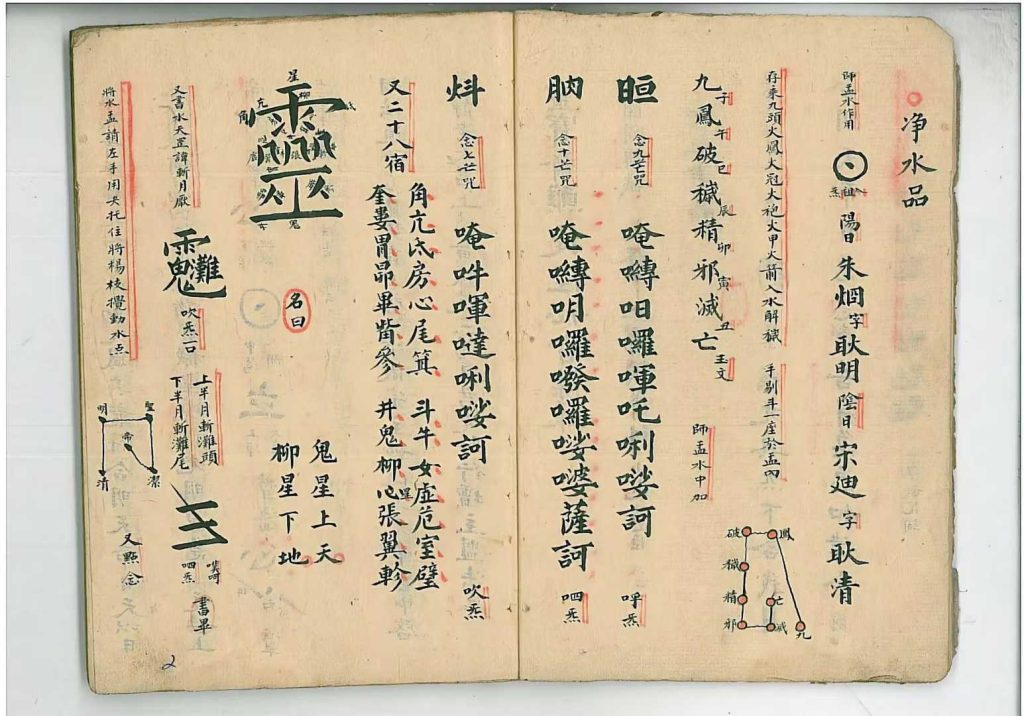 净水品
師盂水作用
祖炁
陽日朱烟字耿明陰日宋迪字耿清
存來九頭火鳳火冠火袍火甲火箭入水解穢 手剔斗一座於盂內
九鳳破穢精邪滅亡
子午巳辰卯寅丑玉文
師盂水中加
鳳
破
穢
精
亡
邪
滅
九
晅 念九芒咒 唵嚩呾囉㖶吒唎娑訶 呼炁
胐 念十芒咒 唵嚩明囉囉娑婆薩訶 呬炁
炓 念七芒咒 唵吽㖶噠唎娑訶 吹炁
又二十八宿
角亢氐房心尾箕 斗牛女虛危室壁
奎婁胃昴畢觜參 井鬼柳星張翼軫
星
亢
角
鬼
名曰
鬼星上天
柳星下地
又書水天罡諱斬月厭
吹炁一口
上半月斬灘頭
下半月斬灘尾
噗呵
呬炁
書畢
將水盂請左手用天托住將楊枝攪動水点
聖
明
帝
潔
清
又點念
2